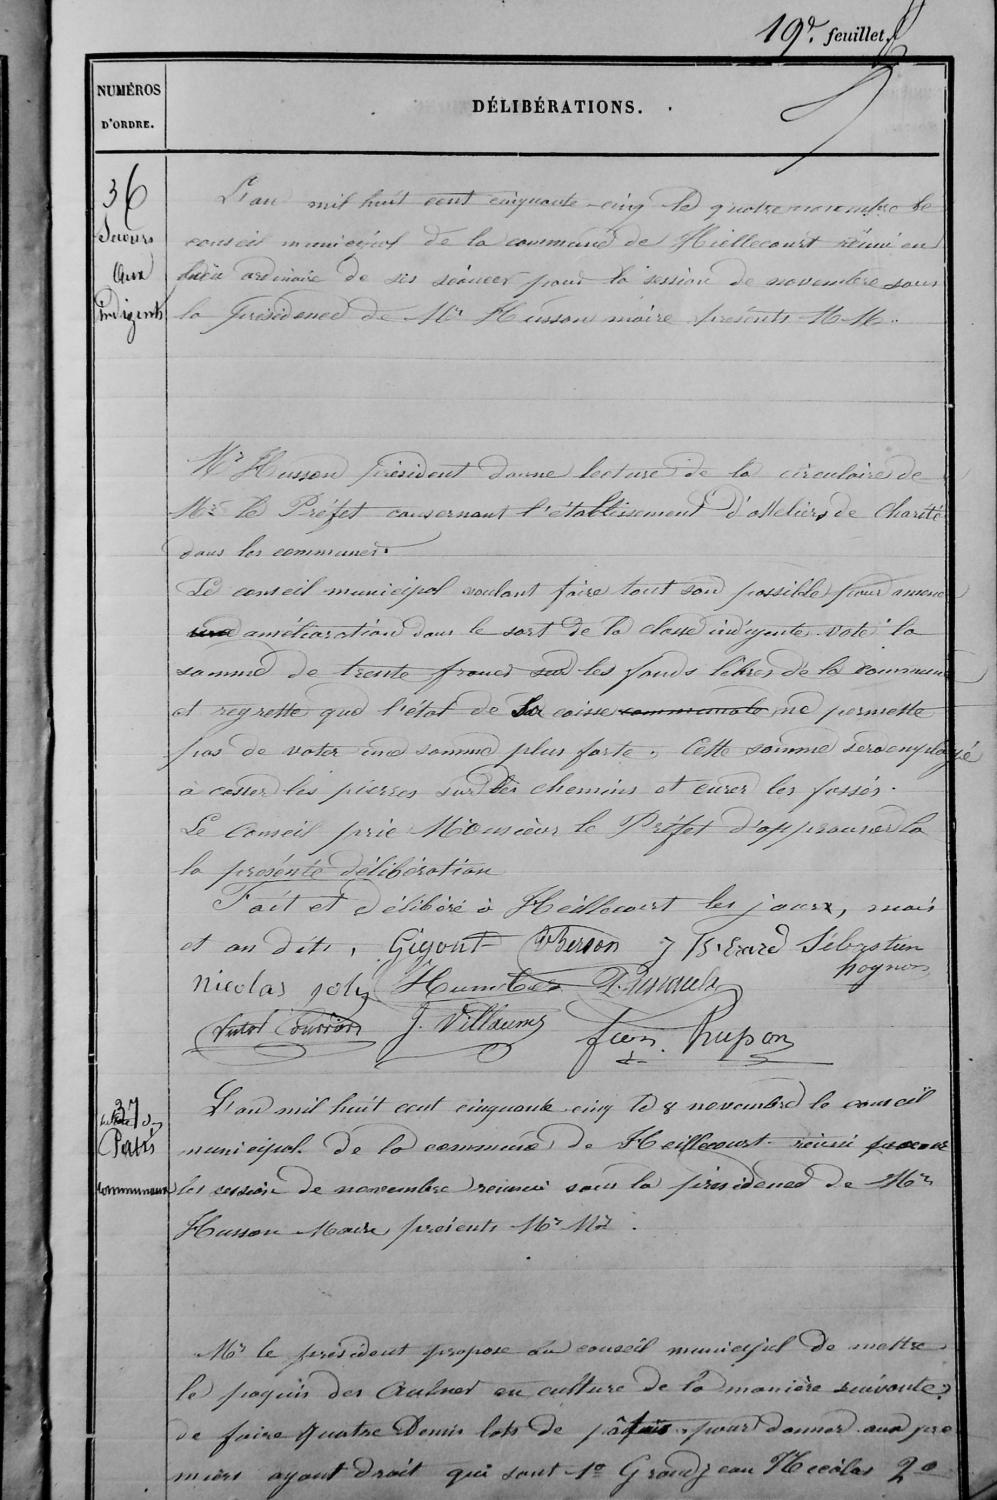 19e. feuillet.
NUMÉROS
D'ORDRE.
DÉLIBÉRATIONS.
36
Secours
Aux
Indigents
L'an mil huit cent cinquante-cinq le quatre novembre le
conseil municipal de la commune de Heillecourt réuni en
lieu ordinaire de ses séances pour la session de novembre sous
la présidence de Mr Husson maire présents M M.
Mr Husson président donne lecture de la circulaire de
Mr le Préfet consernant l'établissement d'atteliers de Charité
dans les communes.
Le conseil municipal voulant faire tout son possible pour amener
une amélioration dans le sort de la classe indigente vote la
somme de trente francs sur les fonds libres de la commune
et regrette que l'état de sa caisse communale ne permette
pas de voter une somme plus forte. Cette somme sera employé
à casser les pierres sur les chemins et curer les fossés.
Le Conseil prie Monsieur le Préfet d'approuver la
la présente délibération
Fait et délibéré à Heillecourt les jours, mois
et an dits, Gigout Berson J Bh Erard Sébastien
hognon
Nicolas joly Humbert
J. Villaume jean husson
37
Patis
communaux
L'an mil huit cent cinquante cinq le 8 novembre le conseil
municipal de la commune de Heillecourt réuni pour
les session de novembre réunie sous la présidence de Mr
Husson Maire présents Mr Mr.
Mr le président propose au conseil municipal de mettre
le paquis des Aulnes en culture de la manière suivante;
de faire quatre Demis lots de pâtis pour donner aux pre
miers ayant droit qui sont 1o Grandjean Nicolas 2o